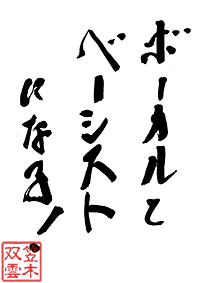 ボーカルと
ベーシスト
になる!
笠木
双雲